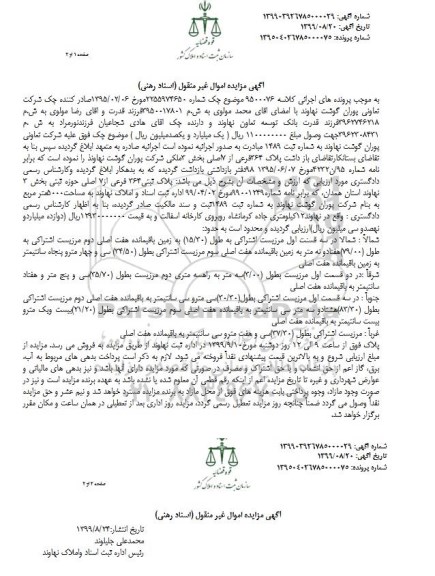 شماره آگهی: ۱۳۹۹۰۳۹۲۶۷۸۵۰۰۰۰۲۹
تاریخ آگهی: ۱۳۹۹/۰۸/۲۰
شماره پرونده: ۱۳۹۵۰۴۰۲۶۷۸۵۰۰۰۰۷۵
قوه قضائیه
سازمان ثبت اسناد و املاک کشور
صفحه ۱ از ۲
آگهی مزایده اموال غیر منقول (اسناد رهنی)
به موجب پرونده های اجرائی کلاسه ۹۵۰۰۰۷۶ موضوع چک شماره ۲۲۵۵۹۷۴۶۵۰مورخ ۱۳۹۵/۰۲/۰۶صادر کننده چک شرکت
تعاونی پوران گوشت نهاوند با امضای آقای محمد مولوی به ش.م ۳۹۵۰۰۱۷۸۰۱فرزند قدرت و آقای رضا مولوی به ش.م
۳۹۶۲۷۴۶۲۱۸فرزند قدرت بانک توسعه تعاون نهاوند و دارنده چک آقای هادی شجاعیان فرزندنورمراد به ش .م
۳۹۶۲۳۰۸۴۲۱جهت وصول مبلغ ۱۱۰۰۰۰۰۰۰۰ ریال ( یک میلیارد و یکصدمیلیون ریال ) موضوع چک فوق علیه شرکت تعاونی
پوران گوشت نهاوند به شماره ثبت ۱۴۸۹ مبادرت به صدور اجرائیه نموده است اجرائیه صادره به متعهد ابلاغ گردیده سپس بنا به
تقاضای بستانکارتقاضای باز داشت پلاک ۳۶۴فرعی از ۷اصلی بخش ۳ملکی شرکت پوران گوشت نهاوند را نموده است که برابر
نامه شماره ۹۵/ن/۴۲۲۲مورخ ۱۳۹۵/۰۶/۰۷ ۹۸دفتر بازداشتی بازداشت گردیده که به بدهکار ابلاغ گردیده وکارشناس رسمی
دادگستری مورد ارزیابی که ارزش و مشخصات آن بشرح ذیل می باشد: پلاک ثبتی۳۶۴ فرعی از۷ اصلی حوزه ثبتی بخش ۳
نهاوند استان همدان، که برابر نامه شماره۹۹۰۰۱۲۳۹مورخ ۹۹/۰۴/۰۲ اداره ثبت اسناد و املاک نهاوند به مساحت۵۰۰۰متر مربع
به بنام شرکت پوران گوشت نهاوند به شماره ثبت ۱۴۸۹ثبت و سند مالکیت صادر گردیده، بنا به اظهار کارشناس رسمی
دادگستری : واقع در نهاوند۱۲کیلومتری جاده کرمانشاه روبروی کارخانه آسفالت و به قیمت ۱۲۹۳۰۰۰۰۰۰۰ریال(دوازده میلیاردو
نهصدو سی میلیون ریال)ارزیابی گردیده و محدود است به حدود:
شمالاً : شمالا در سه قسنت اول مرزیست اشتراکی به طول (۱۵/۳۰) به زمین باقیمانده هفت اصلی دوم مرزیست اشتراکی به
طول (۷۹/۰۰)هفتادو نه متر به زمین باقیمانده هفت اصلی سوم مرزیست اشتراکی بطول (۳۴/۵۰) سی و چهار مترو پنجاه سانتیمتر
به زمین باقیمانده هفت اصلی
شرقاً :در دو قسمت اول مرزیست بطول (۳/۰۰)سه متر به راهسه متری دوم مرزیست بطول (۳۵/۷۰)سی و پنج متر و هفتاد
سانتیمتر به باقیمانده هفت اصلی
جنوباً : در سه قسمت اول مرزیست اشتراکی بطول(۳۰/۳۰)سی مترو سی سانتیمتر به باقیمانده هفت اصلی دوم مرزیست اشتراکی
بطول (۸۳/۳۰)هشتادو سه متر سی سانتیمتر به باقیمانده هفت اصلی سوم مرزیست اشتراکی بطول (۲۱/۲۰)بیست ویک مترو
بیست سانتیمتر به باقیمانده هفت اصلی
غرباً : مرزیست بطول (۳۷/۳۰)سی و هفت مترو سی سانتیمتر به باقیمانده هفت اصلی
پلاک فوق از ساعت ۹ الی ۱۲ روز دوشنبه مورخ۱۳۹۹/۹/۱۰ در اداره ثبت نهاوند از طریق مزایده به فروش می رسد. مزایده از
مبلغ ارزیابی شروع و به بالاترین قیمت پیشنهادی نقداً فروخته می شود. لازم به ذکر است پرداخت بدهی های مربوط به آب،
برق، گاز اعم از حق انشعاب و یا حق اشتراک و مصرف در صورتی که مورد مزایده دارای آنها باشد و نیز بدهی های مالیاتی و
عوارض شهرداری و غیره تا تاریخ مزایده اعم از اینکه رقم قطعی آن معلوم شده یا نشده باشد به عهده برنده مزایده است و نیز در
صورت وجود مازاد، وجوه پرداختی بابت هزینه های فوق از محل مازاد به برنده مزایده مسترد خواهد شد و نیم عشر و حق مزایده
نقداً وصول می گردد ضمناً چنانچه روز مزایده تعطیل رسمی گردد، مزایده روز اداری بعد از تعطیلی در همان ساعت و مکان مقرر
برگزار خواهد شد.
شماره آگهی: ۱۳۹۹۰۳۹۲۶۷۸۵۰۰۰۰۲۹
تاریخ آگهی: ۱۳۹۹/۰۸/۲۰
شماره پرونده: ۱۳۹۵۰۴۰۲۶۷۸۵۰۰۰۰۷۵
سازمان ثبت اسناد و املاک کشور
صفحه ۲ از ۲
آگهی مزایده اموال غیر منقول (اسناد رهنی)
تاریخ انتشار:۱۳۹۹/۸/۲۴
محمدعلی جلیلوند
رئیس اداره ثبت اسناد واملاک نهاوند